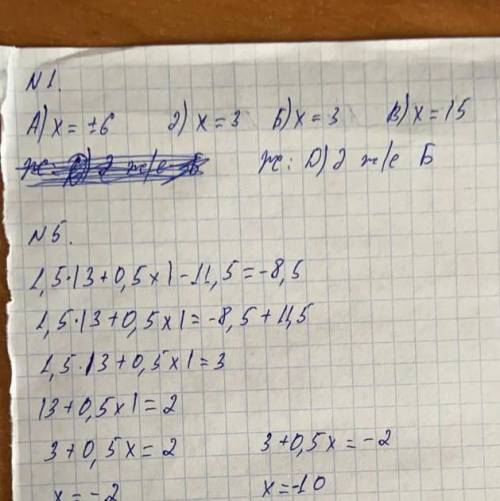 N1.
А) x = ±6 2) x = 3 Б) x = 3 В) x = 15
ж: Д) 2 ж/е Б
N5.
1,5·|3+0,5x|-11,5=-8,5
1,5·|3+0,5x|=-8,5+11,5
1,5·|3+0,5x|=3
|3+0,5x|=2
3+0,5x=2 3+0,5x=-2
x=-2 x=-10